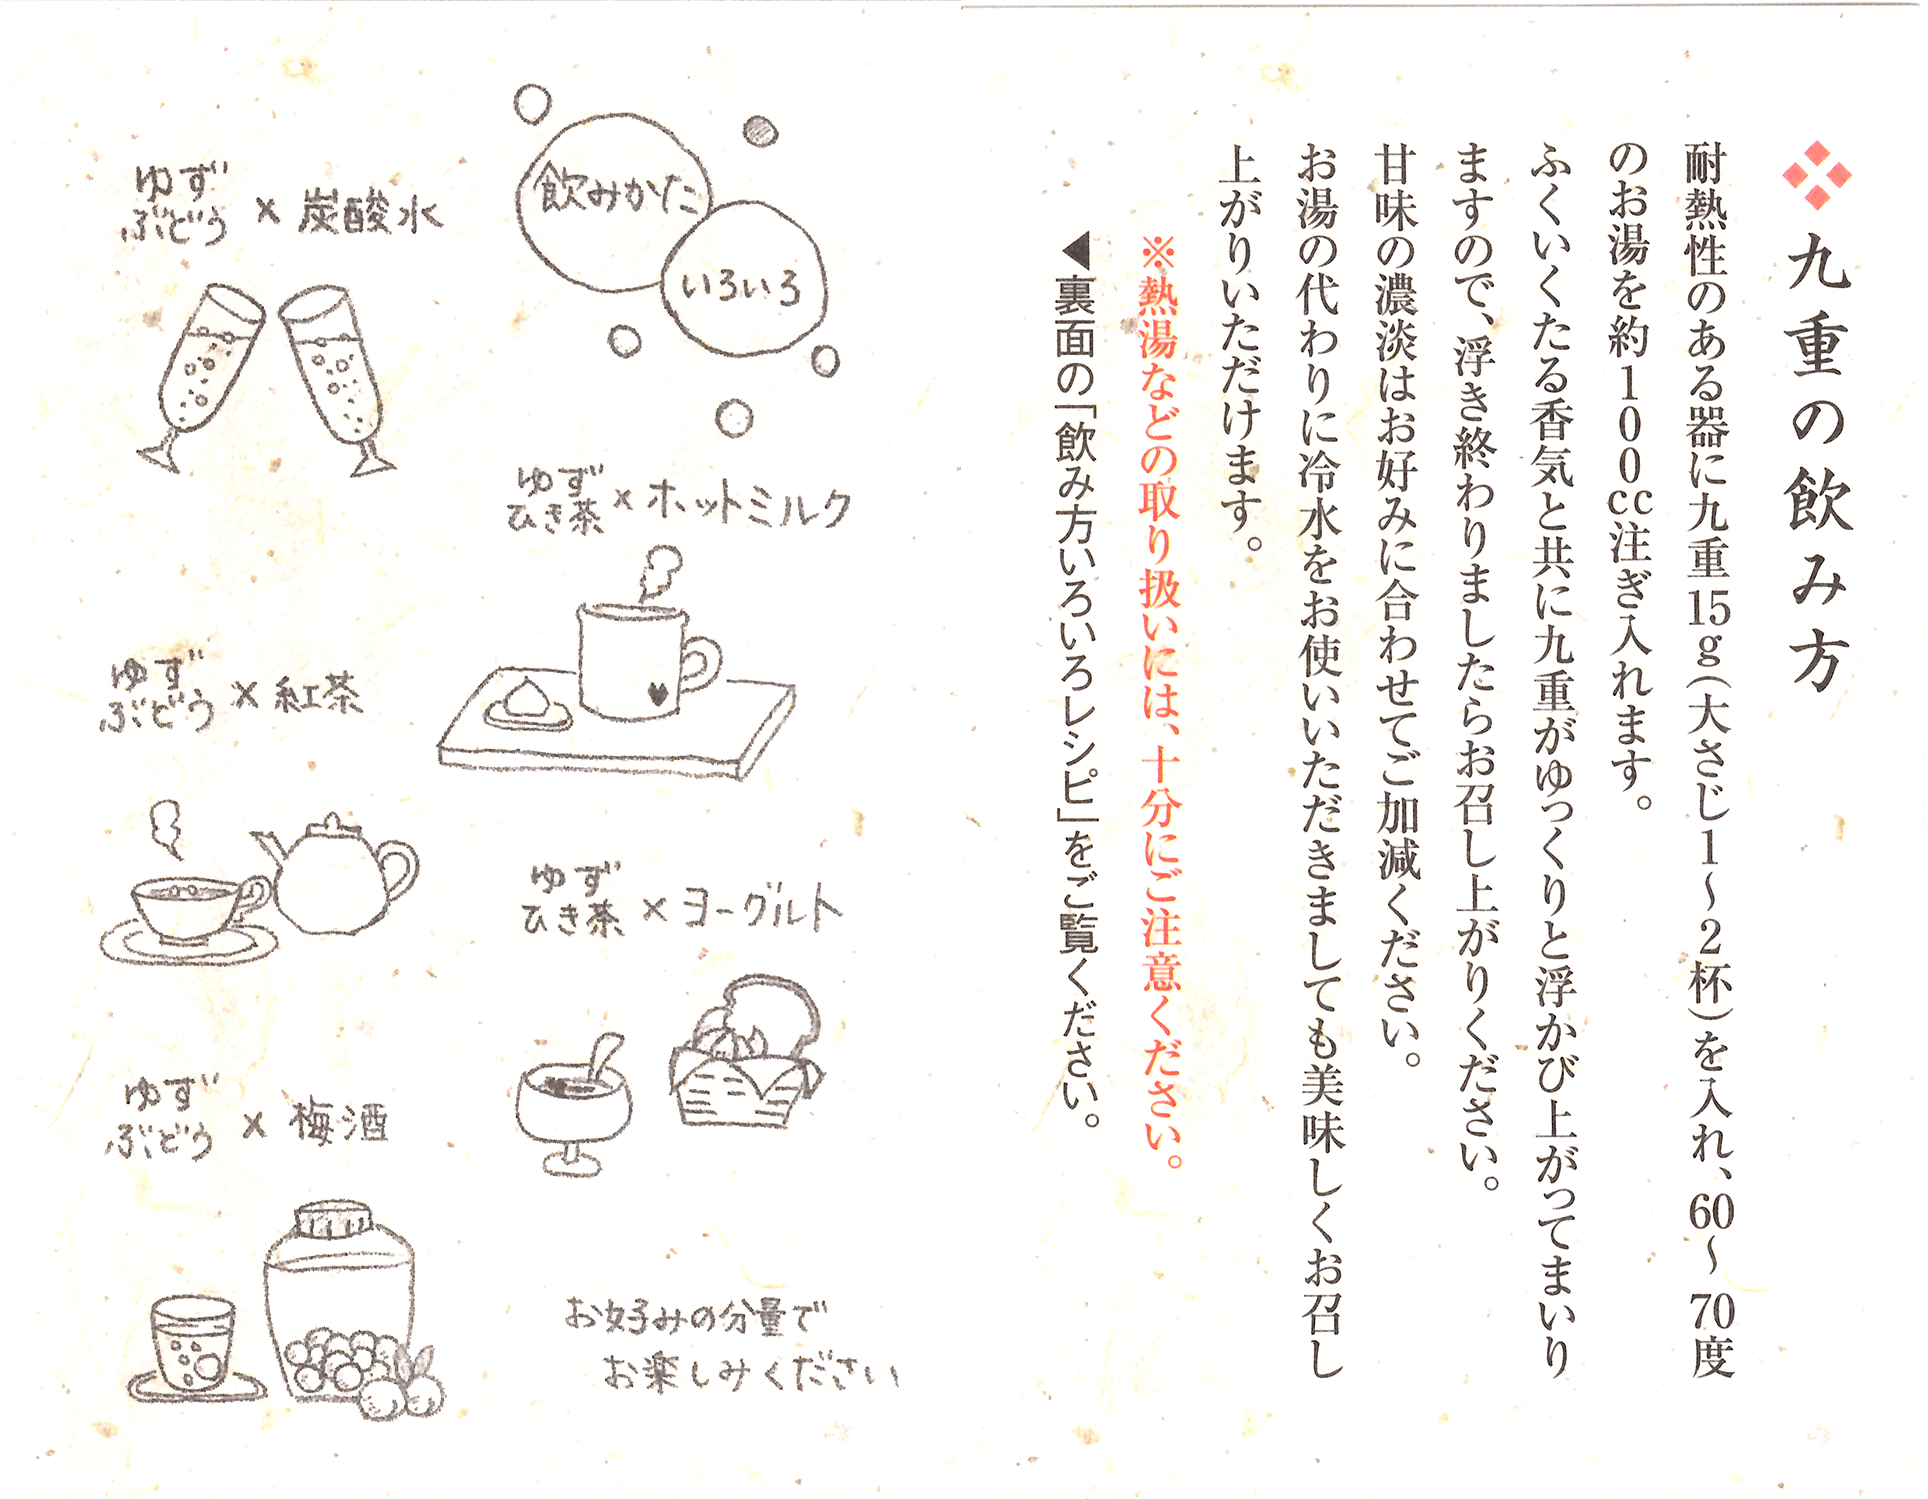 九重の飲み方
耐熱性のある器に九重15g(大さじ1〜2杯)を入れ、60〜70度
のお湯を約100cc注ぎ入れます。
ふくいくたる香気と共に九重がゆっくりと浮かび上がってまいり
ますので、浮き終わりましたらお召し上がりください。
甘味の濃淡はお好みに合わせてご加減ください。
お湯の代わりに冷水をお使いいただきましても美味しくお召し
上がりいただけます。
※熱湯などの取り扱いには、十分にご注意ください。
◀裏面の「飲み方いろいろレシピ」をご覧ください。
飲みかた
いろいろ
ゆず
ぶどう × 炭酸水
ゆず
ひき茶 × ホットミルク
ゆず
ぶどう × 紅茶
ゆず
ひき茶 × ヨーグルト
ゆず
ぶどう × 梅酒
お好みの分量で
お楽しみください